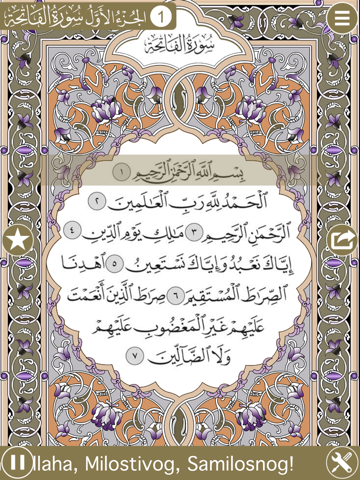 الجزء الأول سورة الفاتحة 1
سُورَةُ الْفَاتِحَةِ
بِسْمِ ٱللَّهِ ٱلرَّحْمَٰنِ ٱلرَّحِيمِ ١
ٱلْحَمْدُ لِلَّهِ رَبِّ ٱلْعَٰلَمِينَ ٢
ٱلرَّحْمَٰنِ ٱلرَّحِيمِ ٣ مَٰلِكِ يَوْمِ ٱلدِّينِ ٤
إِيَّاكَ نَعْبُدُ وَإِيَّاكَ نَسْتَعِينُ ٥ ٱهْدِنَا
ٱلصِّرَٰطَ ٱلْمُسْتَقِيمَ ٦ صِرَٰطَ ٱلَّذِينَ أَنْعَمْتَ
عَلَيْهِمْ غَيْرِ ٱلْمَغْضُوبِ عَلَيْهِمْ
وَلَا ٱلضَّآلِّينَ ٧
llaha, Milostivog, Samilosnog!